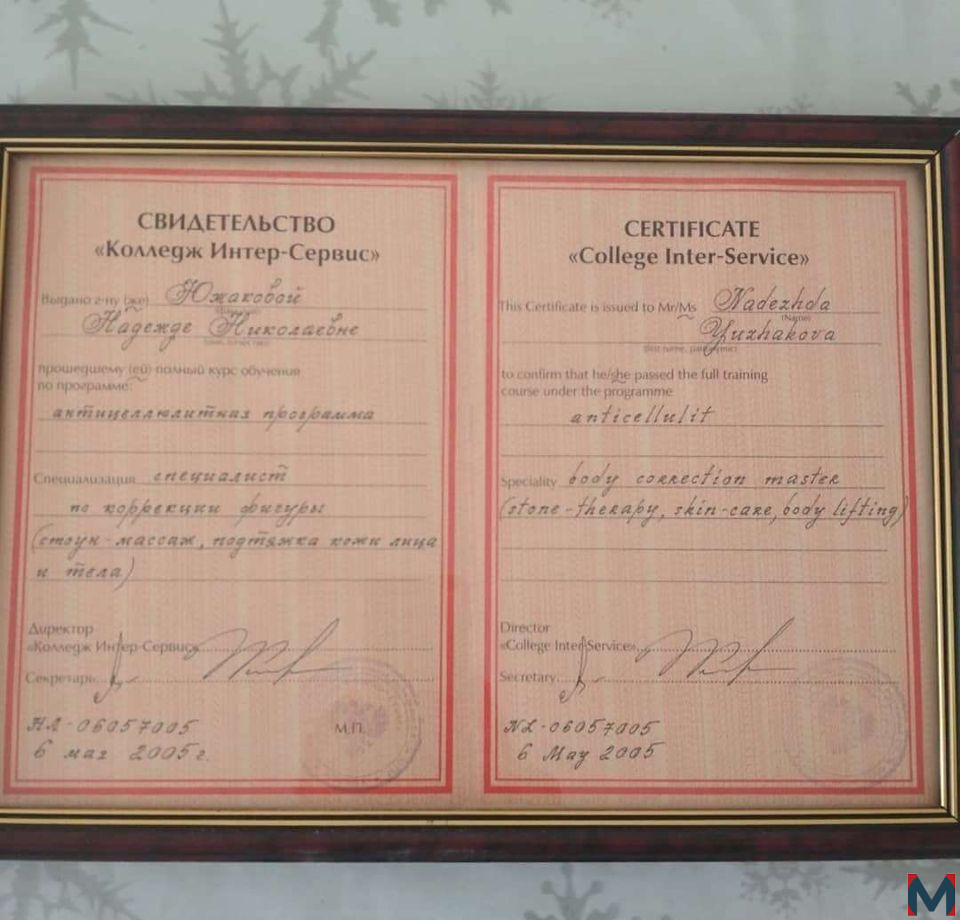 СВИДЕТЕЛЬСТВО
«Колледж Интер-Сервис»
Выдано г-ну (же) Южаковой
Надежде Николаевне
прошедшему (ей) полный курс обучения
по программе:
антицеллюлитная программа
Специализация специалист
по коррекции фигуры
(стоун-массаж, подтяжка кожи лица
и тела)
Директор
«Колледж Интер-Сервис»
Секретарь
НЛ-06057005
М.П.
6 мая 2005г.
CERTIFICATE
«College Inter-Service»
This Certificate is issued to Mr/Ms Nadezhda
(Name)
Yuzhakova
(first name, patronymic)
to confirm that he/she passed the full training
course under the programme
anticellulit
Speciality body correction master
(stone-therapy, skin-care, body lifting)
Director
«College Inter-Service»
Secretary
NL-06057005
6 May 2005
M